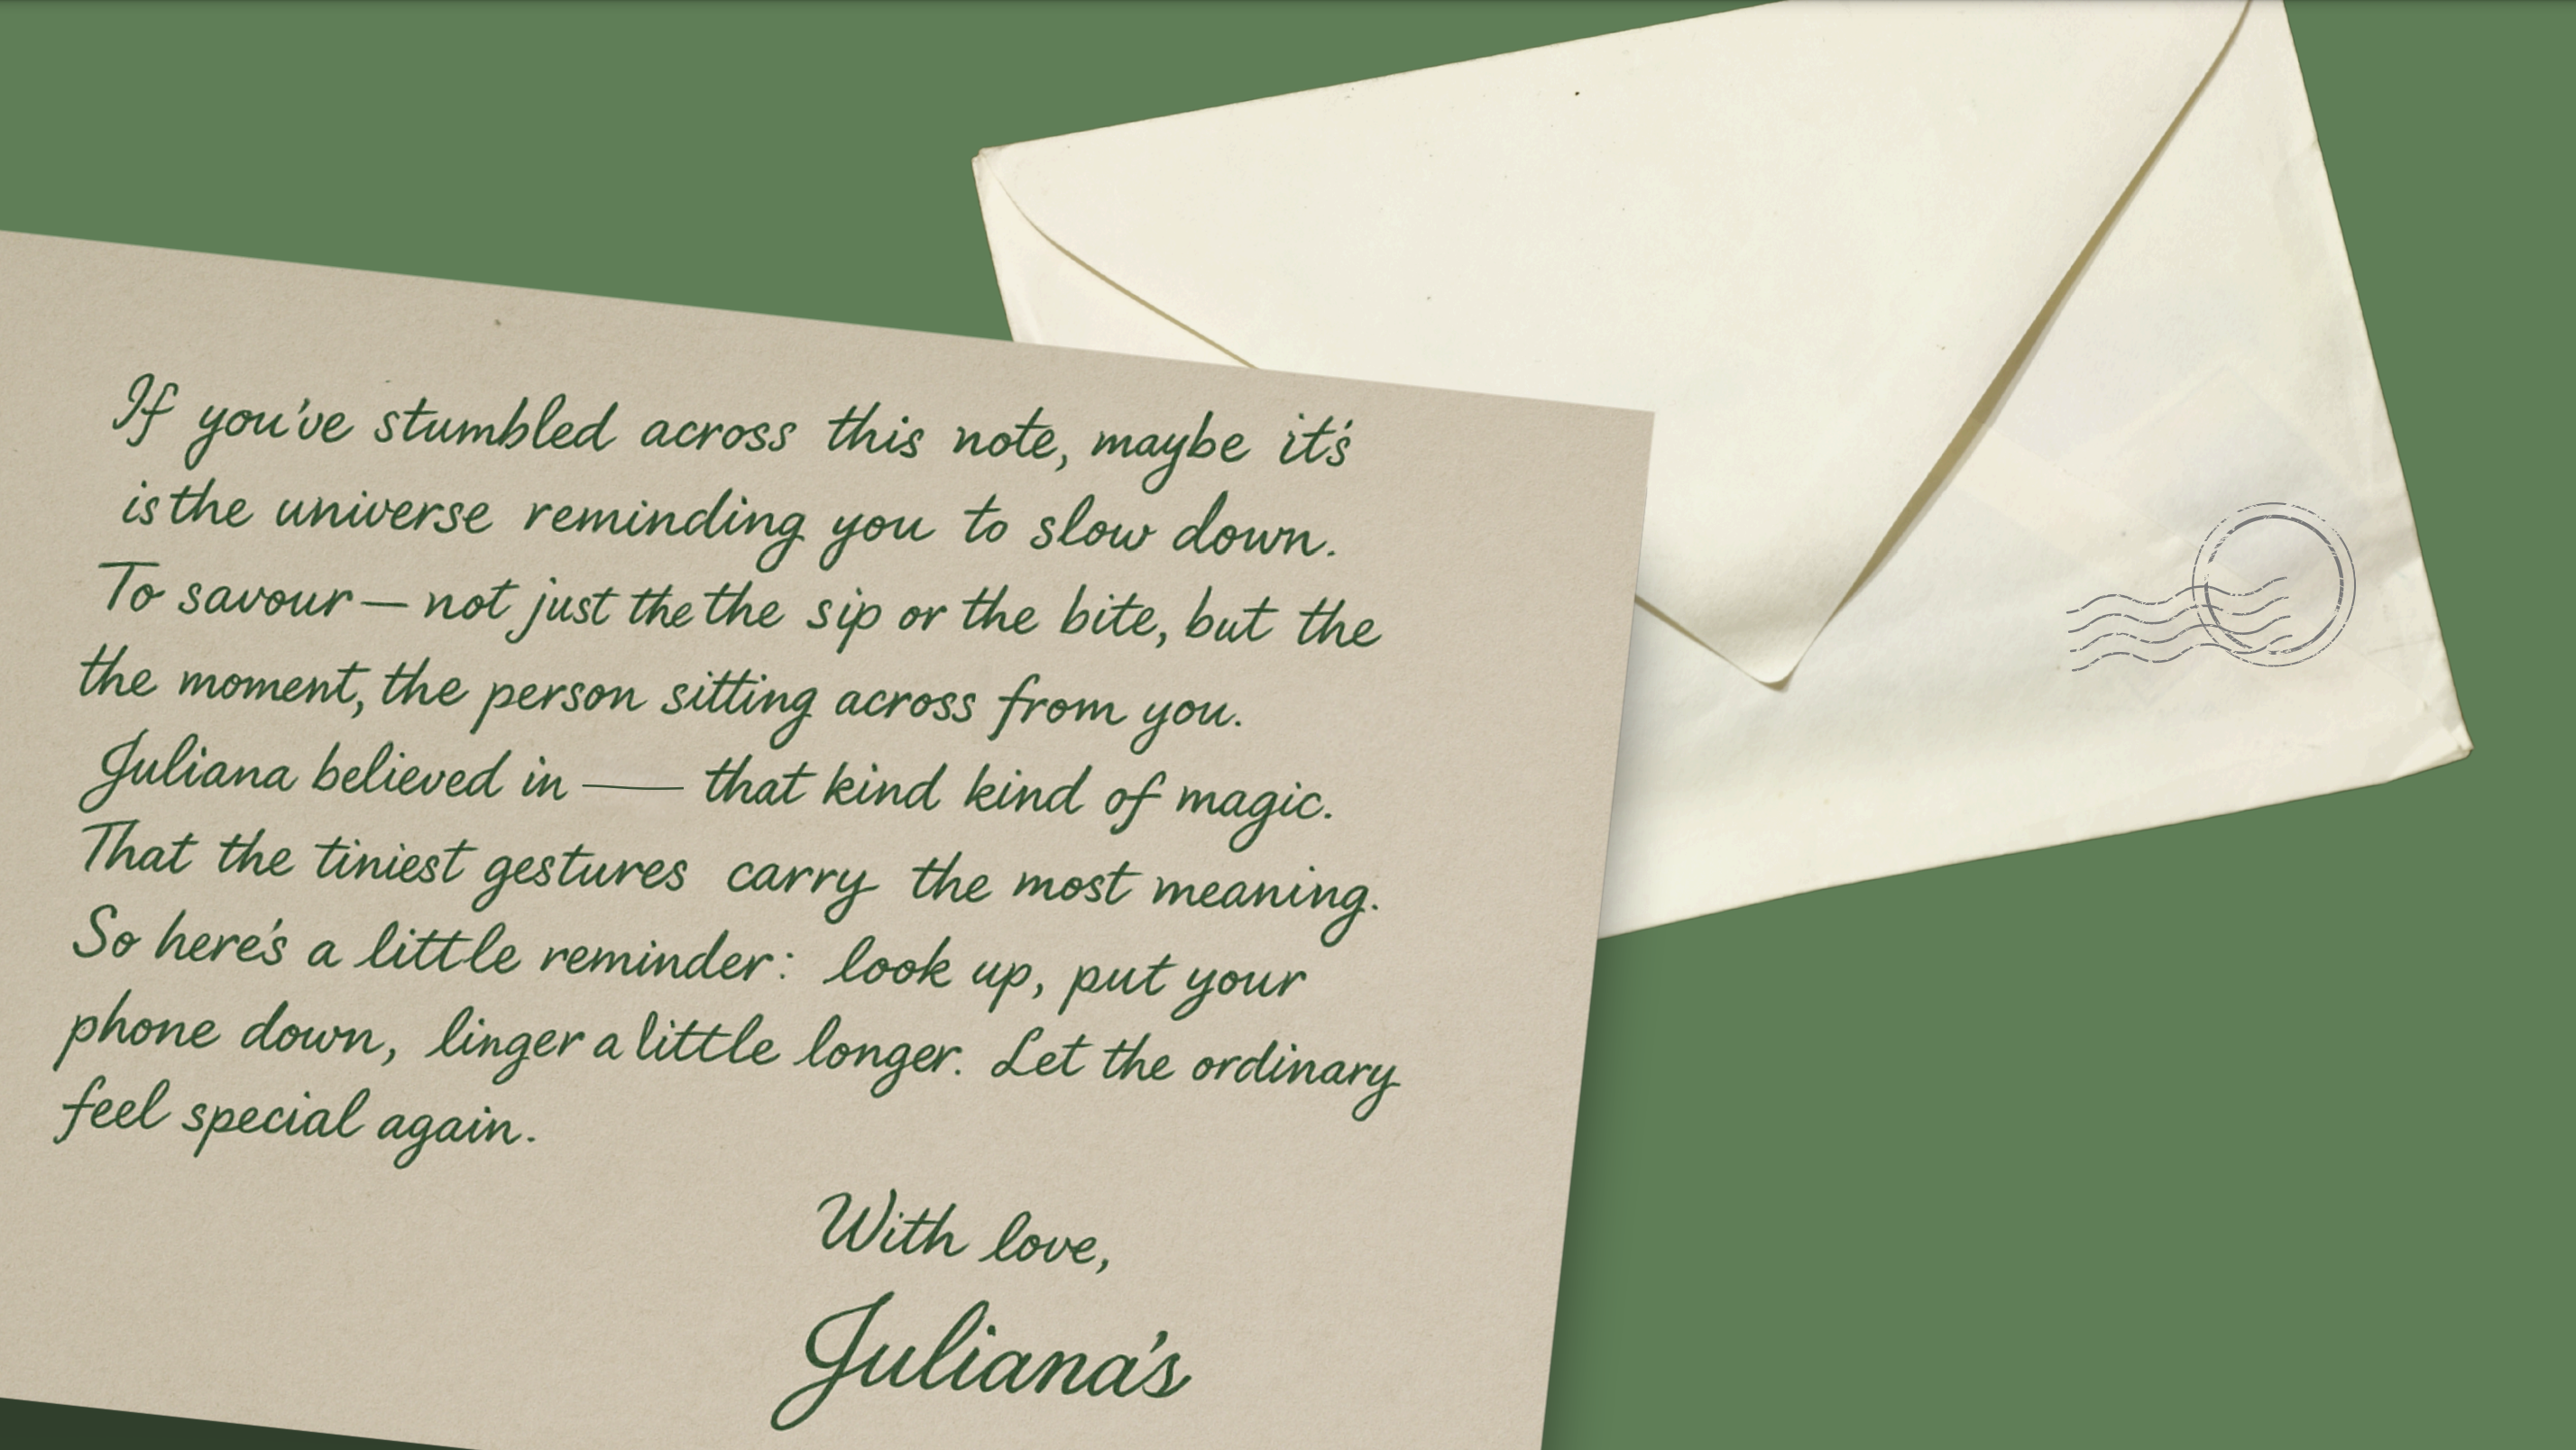 If you've stumbled across this note, maybe it's
is the universe reminding you to slow down.
To savour — not just the the sip or the bite, but the
the moment, the person sitting across from you.
Juliana believed in — that kind kind of magic.
That the tiniest gestures carry the most meaning.
So here's a little reminder: look up, put your
phone down, linger a little longer. Let the ordinary
feel special again.
With love,
Juliana's